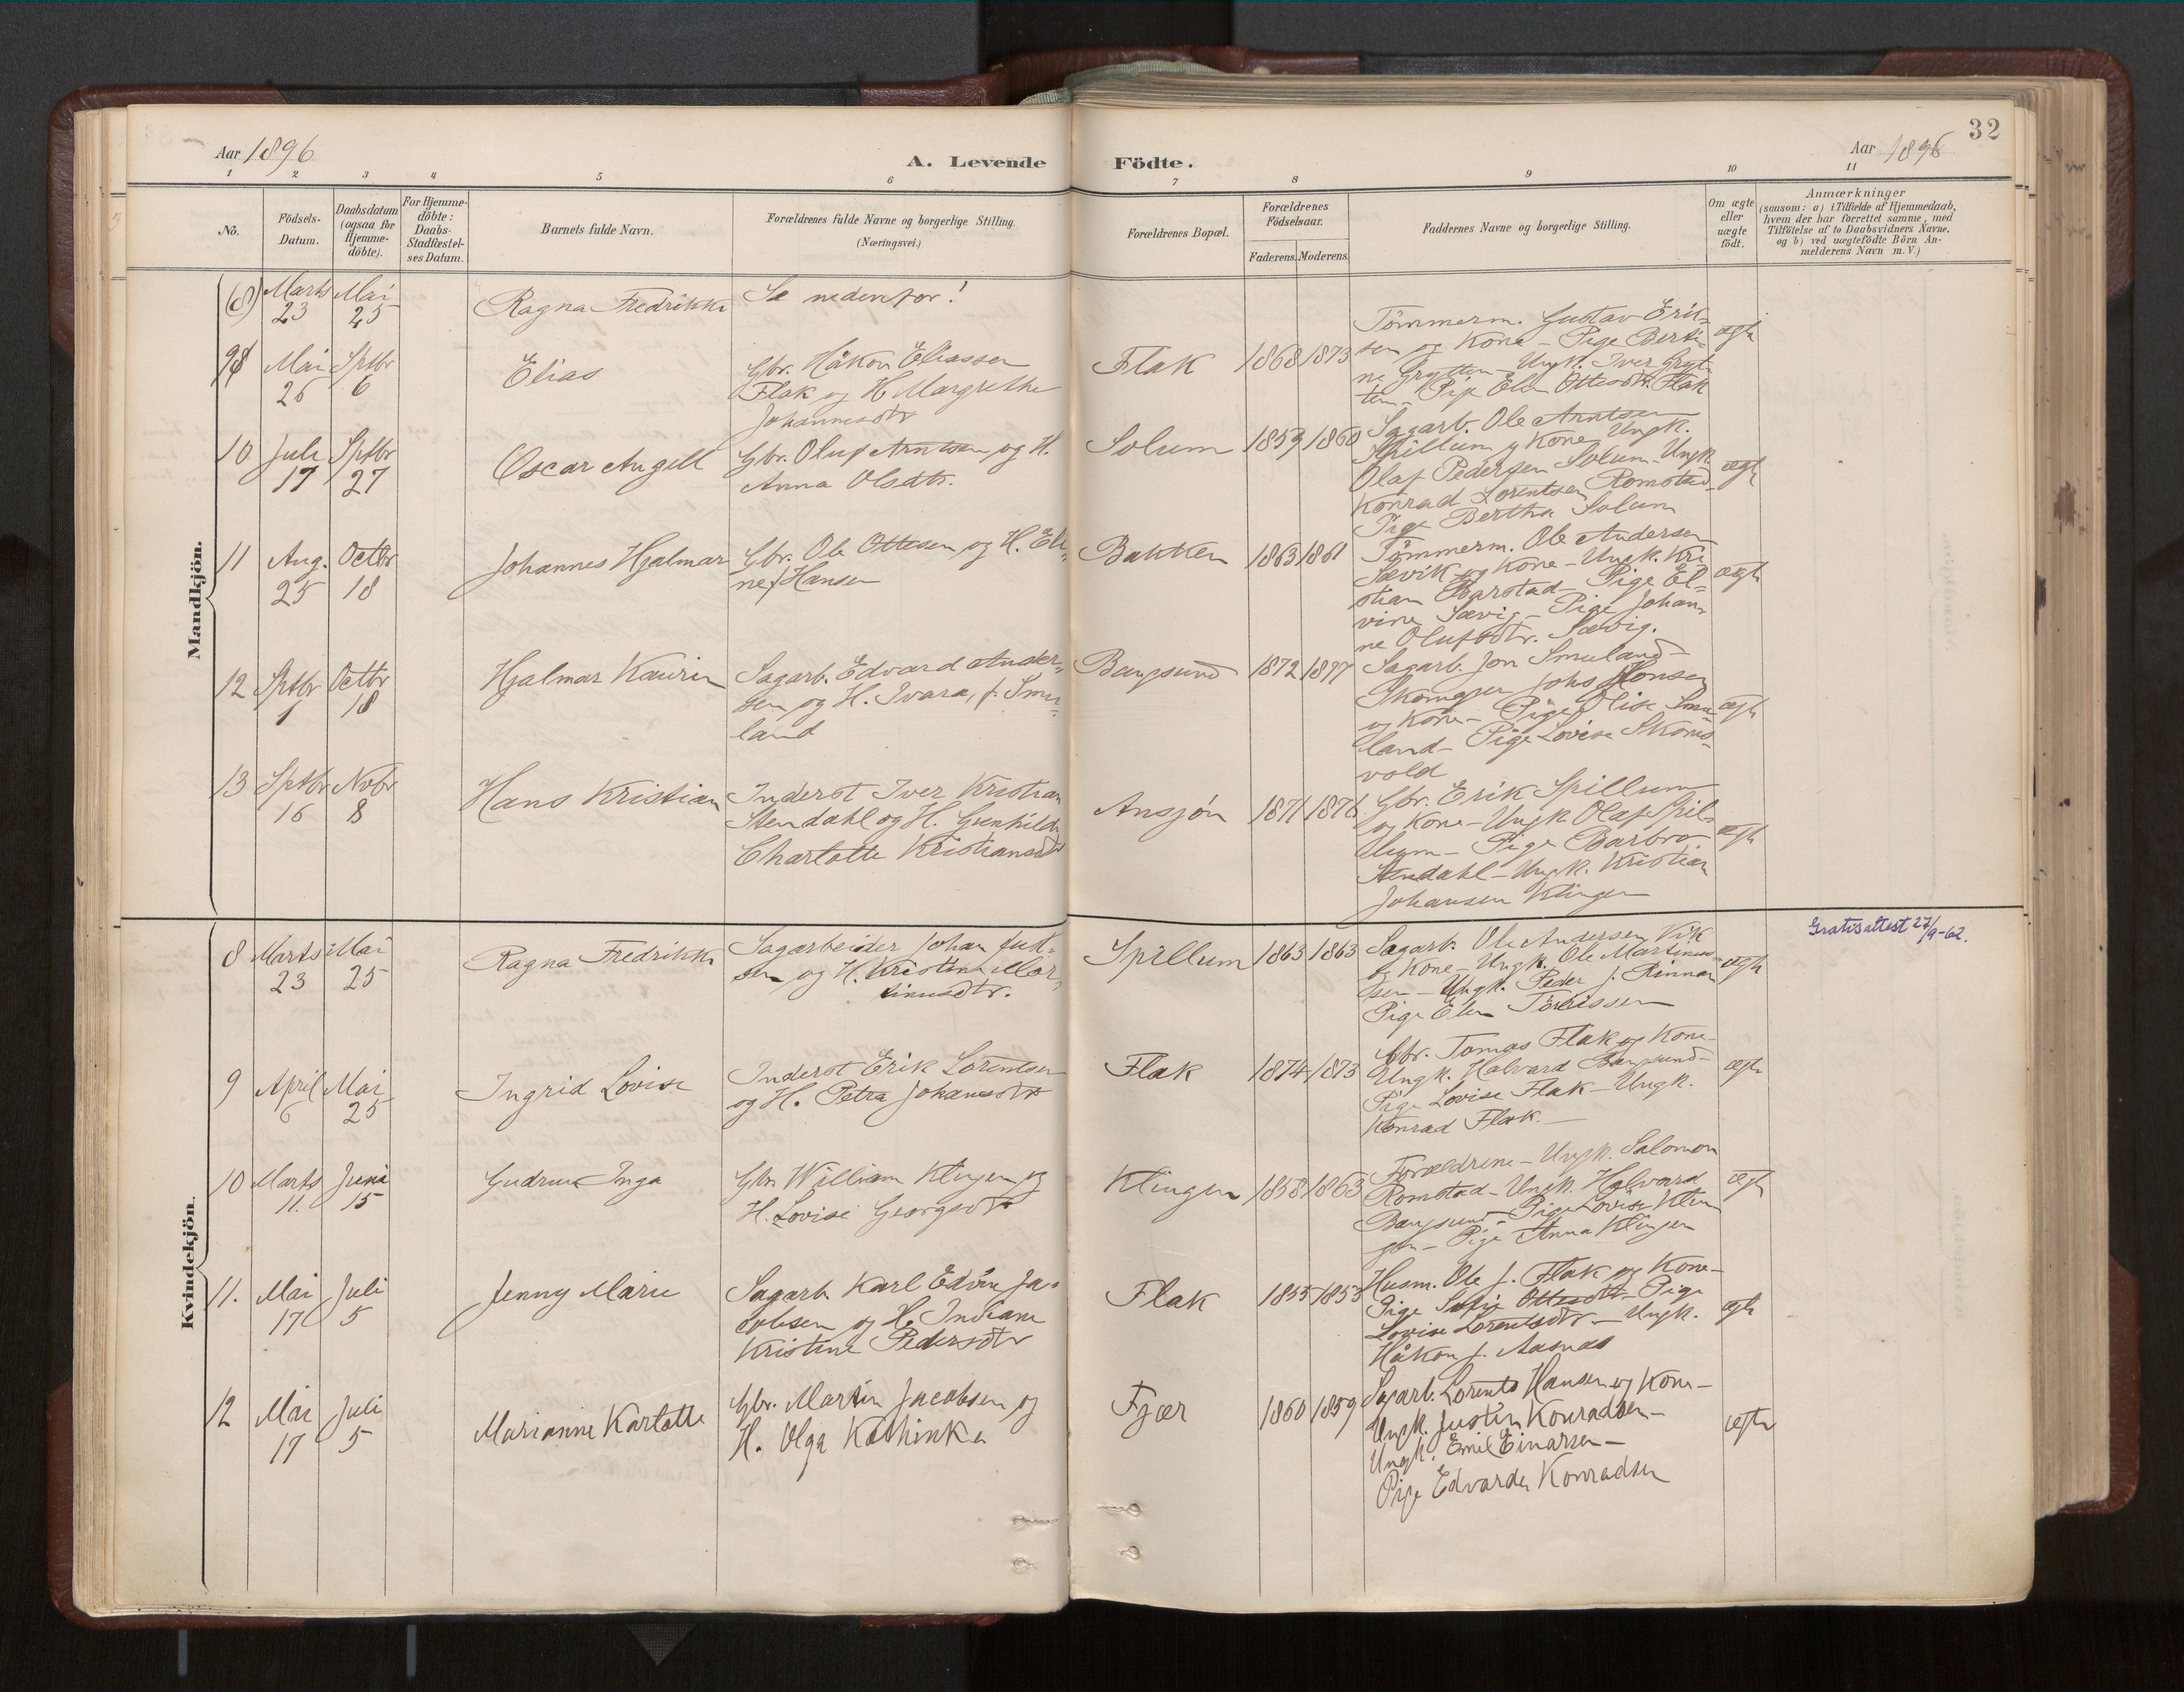 32
Aar 1896
A. Levende Födte.
Aar 1896
1 2 3 4 5 6 7 8 9 10 11
No.
Födsels-
Datum.
Daabsdatum
(ogsaa for
Hjemme-
döbte).
For Hjemme-
döbte:
Daabs-
Stadfæstel-
ses Datum.
Barnets fulde Navn.
Forældrenes fulde Navne og borgerlige Stilling.
(Næringsvei.)
Forældrenes Bopæl.
Forældrenes
Födselsaar.
Faderens. Moderens.
Faddernes Navne og borgerlige Stilling.
Om ægte
eller
uægte
födt.
Anmærkninger
(saasom: a) i Tilfælde af Hjemmedaab,
hvem der har forrettet samme, med
Tilföielse af to Daabsvidners Navne,
og b) ved uægtefödte Börn An-
melderens Navn m.V.)
Mandkjön.
(8) Marts 23 Mai 25
Ragna Fredrikke
Se nedenfor!
9 Mai 26 Sptbr 6
Elias
Gbr. Håkon Eliassen
Flak og H. Margrethe
Johannesdtr
Flak
1868 1873
Tömmerm. Gustav Erik-
sen og Kone - Pige Berti-
ne Grytten - Ungk. Iver Gryt-
ten - Pige Elen Ottesdtr. Flak
ægte
10 Juli 17 Sptbr 27
Oscar Angell
Gbr. Oluf Arntsen og H.
Anna Olsdtr.
Solum
1859 1860
Sagarb. Ole Arntsen
Spillum og Kone - Ungk.
Olaf Pedersen Solum - Ungk.
Konrad Lorentsen Romstad -
Pige Bertha Solum
ægte
11 Aug. 25 Octbr 18
Johannes Hjalmar
Gbr. Ole Ottesen og H. Eli-
ne f. Hansen
Bakken
1863 1861
Tömmerm. Ole Andersen
Sævik og Kone - Ungk. Kri-
stian Barstad - Pige El-
vine Sævig - Pige Johan-
ne Olufsdtr. Sævig.
ægte
12 Sptbr 1 Octbr 18
Hjalmar Kaurin
Sagarb. Edvard Ander-
sen og H. Ivara, f. Smu-
land
Bangsund
1872 1877
Sagarb. Jon Smuland -
Johs Hansen
og Kone - Pige Olise Smu-
land - Pige Lovise Skoms-
vold
ægte
13 Sptbr 16 Novbr 8
Hans Kristian
Inderst Iver Kristian
Stendahl og H. Gunhild
Charlotte Kristiansdtr
Ansjön
1871 1876
Gbr. Erik Spillum
og Kone - Ungk. Olaf Spil-
lum - Pige Barbro
Stendahl - Ungk. Kristian
Johansen Klingen
ægte
Kvindekjön.
8 Marts 23 Mai 25
Ragna Fredrikke
Sagarbeider Johan Juk-
sen og H. Kristina Mar-
tinusdtr.
Spillum
1863 1863
Sagarb. Ole Andersen Vik
og Kone - Ungk. Ole Martinus-
sen - Ungk. Peder J. Rinnan
Pige Elen Torrissen
ægte
Gratisattest 27/9-62.
9 April 6 Mai 25
Ingrid Lovise
Inderst Erik Lorentsen
og H. Petra Johansdtr
Flak
1874 1873
Gbr. Tomas Flak og Kone -
Ungk. Halvard Bangsund -
Pige Lovise Flak - Ungk.
Konrad Flak. -
ægte
10 Marts 11. Juni 15
Gudrun Inga
Gbr. William Klingen og
H. Lovise Georgsdtr
Klingen
1858 1863
Forældrene - Ungk. Salomon
Romstad - Ungk. Halvard
Bangsund - Pige Lovise Klin-
gen - Pige Anna Klingen
ægte
11. Mai 17 Juli 5
Jenny Marie
Sagarb. Karl Edvin Ja-
cobsen og H. Indiane
Kristine Pedersdtr
Flak
1855 1853
Husm. Ole J. Flak og Kone -
Pige Sofie Ottesdtr - Pige
Lovise Lorentsdtr. - Ungk.
Håkon J. Aasnas
ægte
12 Mai 17 Juli 5
Marianne Karlotte
Gbr. Martin Jacobsen og
H. Olga Kathinka
Fjær
1860 1859
Sagarb. Lorents Hansen og Kone -
Ungk. Justin Konradsen -
Ungk. Emil Einarsen -
Pige Edvarda Konradsen
ægte